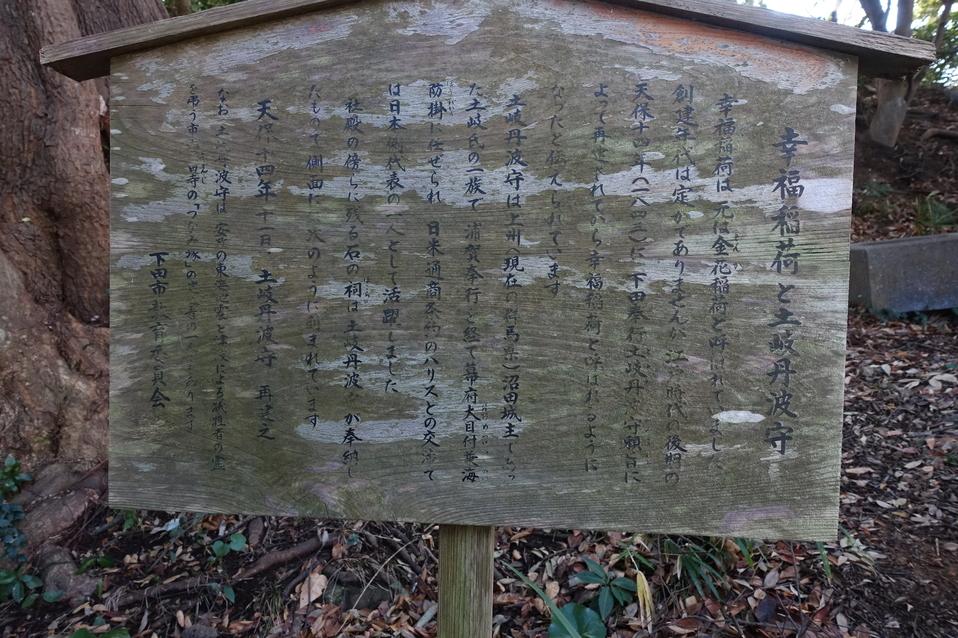 幸福稲荷と土岐丹波守
幸福稲荷は元は金花稲荷と呼ばれていました
創建年代は定かでありませんが江戸時代の後期の
天保十四年(一八四三)に下田奉行土岐丹波守頼旨に
よって再建されてから幸福稲荷と呼ばれるように
なったと伝えられています
土岐丹波守は上州(現在の群馬県)沼田城主だっ
た土岐氏の一族で浦賀奉行を経て幕府大目付兼海
防掛に任ぜられ日米通商条約のハリスとの交渉で
は日本側代表の一人として活躍しました
社殿の傍らに残る石の祠は土岐丹波守が奉納し
たもので側面に次のように刻まれています
天保十四年十一日 土岐丹波守 再建之
なお土岐丹波守は安政の東海地震と津波による犠牲者の霊
を弔う市
下田市教育委員会